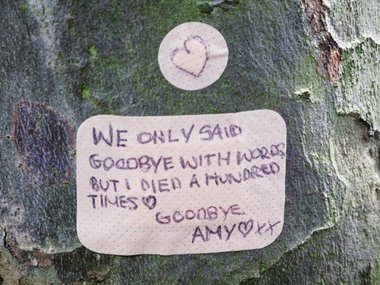 WE ONLY SAID
GOODBYE WITH WORDS
BUT I DIED A HUNDRED
TIMES♡
GOODBYE
AMY♡XX